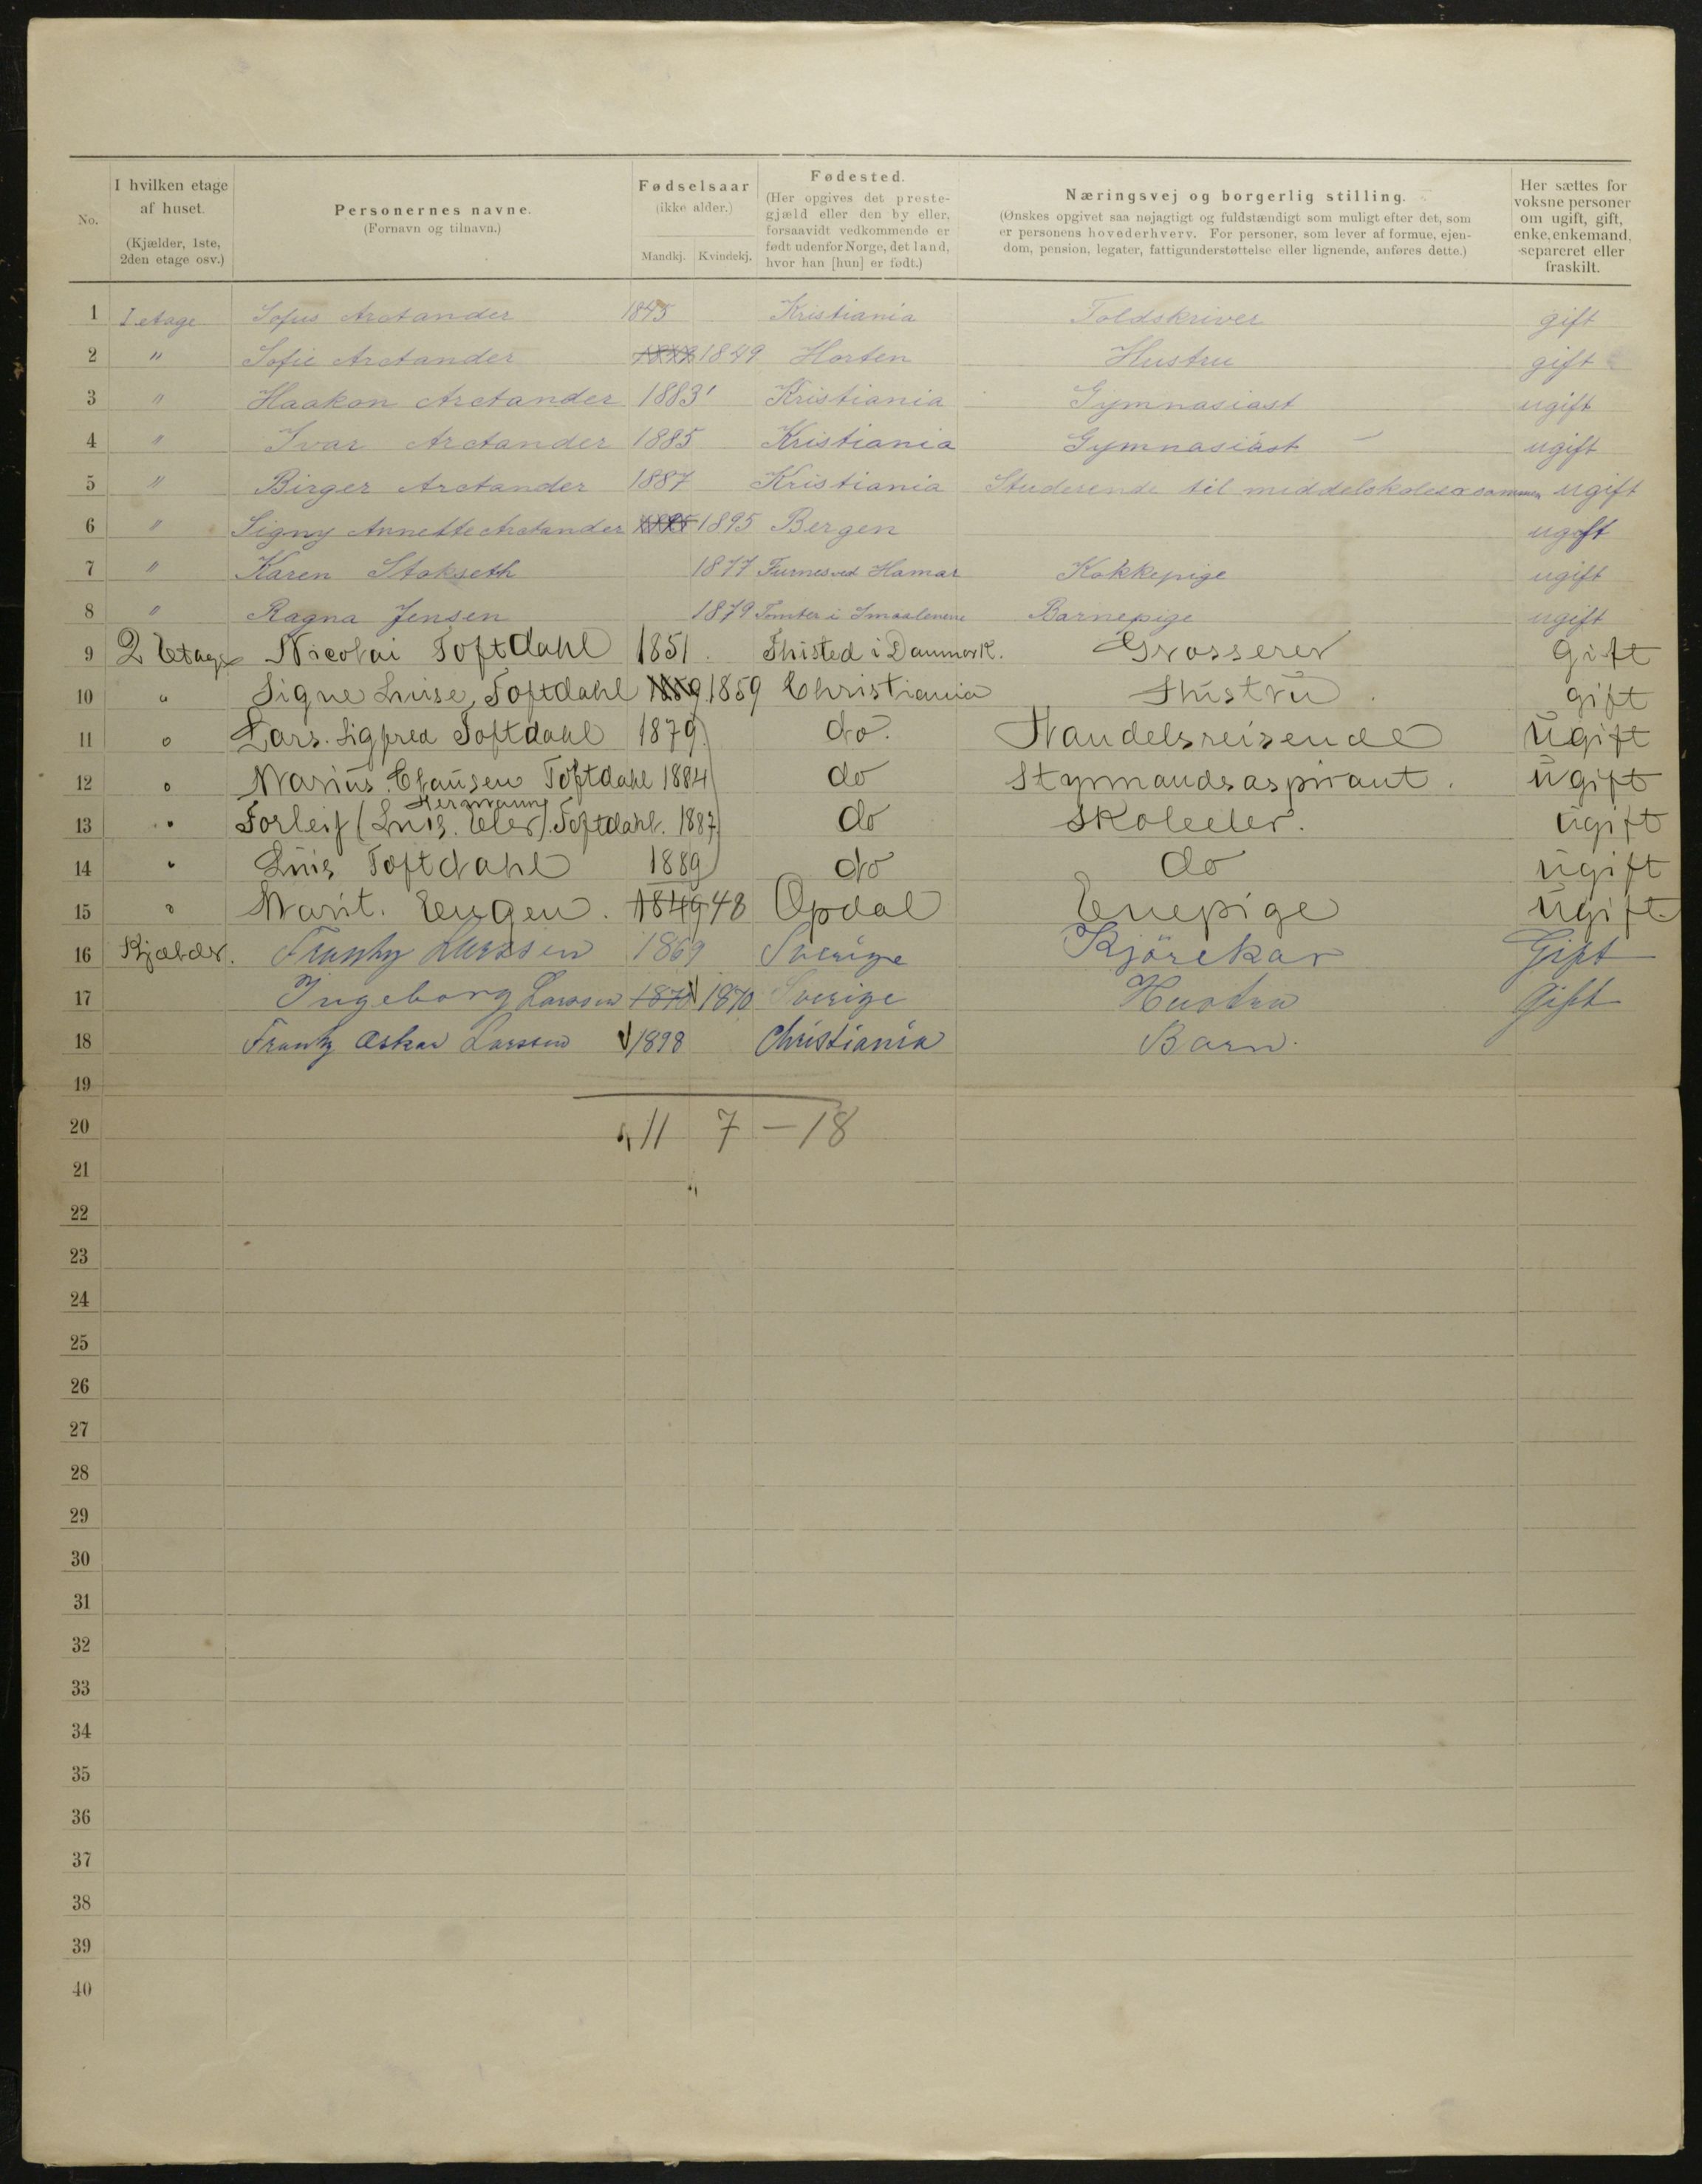 No. I hvilken etage af huset. (Kjælder, 1ste, 2den etage osv.) Personernes navne. (Fornavn og tilnavn.) Fødselsaar (ikke alder.) Mandkj. Kvindekj. Fødested. (Her opgives det prestegjæld eller den by eller, forsaavidt vedkommende er født udenfor Norge, det land, hvor han [hun] er født.) Næringsvej og borgerlig stilling. (Ønskes opgivet saa nøjagtigt og fuldstændigt som muligt efter det, som er personens hovederhverv. For personer, som lever af formue, ejendom, pension, legater, fattigunderstøttelse eller lignende, anføres dette.) Her sættes for voksne personer om ugift, gift, enke, enkemand, separeret eller fraskilt.
1 I etage Sofus Arctander 1845 Kristiania Toldskriver gift
2 " Sofie Arctander 1849 Horten Hustru gift
3 " Haakon Arctander 1883 Kristiania Gymnasiast ugift
4 " Ivar Arctander 1885 Kristiania Gymnasiast ugift
5 " Birger Arctander 1887 Kristiania Studerende til middelskole ugift
6 " Signy Annette Arctander 1895 Bergen ugift
7 " Karen Stokseth 1877 Furnes ved Hamar Kokkepige ugift
8 " Ragna Jensen 1879 Tomter i Smaalenene Barnepige ugift
9 2 Etage Nicolai Toftdahl 1851. Thisted i Danmark. Grosserer Gift
10 " Signe Luise Toftdahl 1859 1859 Christiania Hustru gift
11 " Lars. Sigfred Toftdahl 1879 do. Handelsreisende Ugift
12 " Marius. Clausen Toftdahl 1884 do Styrmandsaspirant. Ugift
Hermann
13 " Torleif (Luis. ) Toftdahl. 1887 do Skoleelev. ugift
14 " Luis Toftdahl 1889 do do ugift
15 " Marit. Engen. 1849 48 Opdal Enepige Ugift.
16 Kjælder. Frantz Larssen 1869 Sverige Kjörekar Gift
17 Ingeborg Larssen 1870 1870 Sverige Hustru Gift
18 Frantz Oskar Larssen 1898 Christiania Barn.
19
20 11 7 — 18
21
22
23
24
25
26
27
28
29
30
31
32
33
34
35
36
37
38
39
40